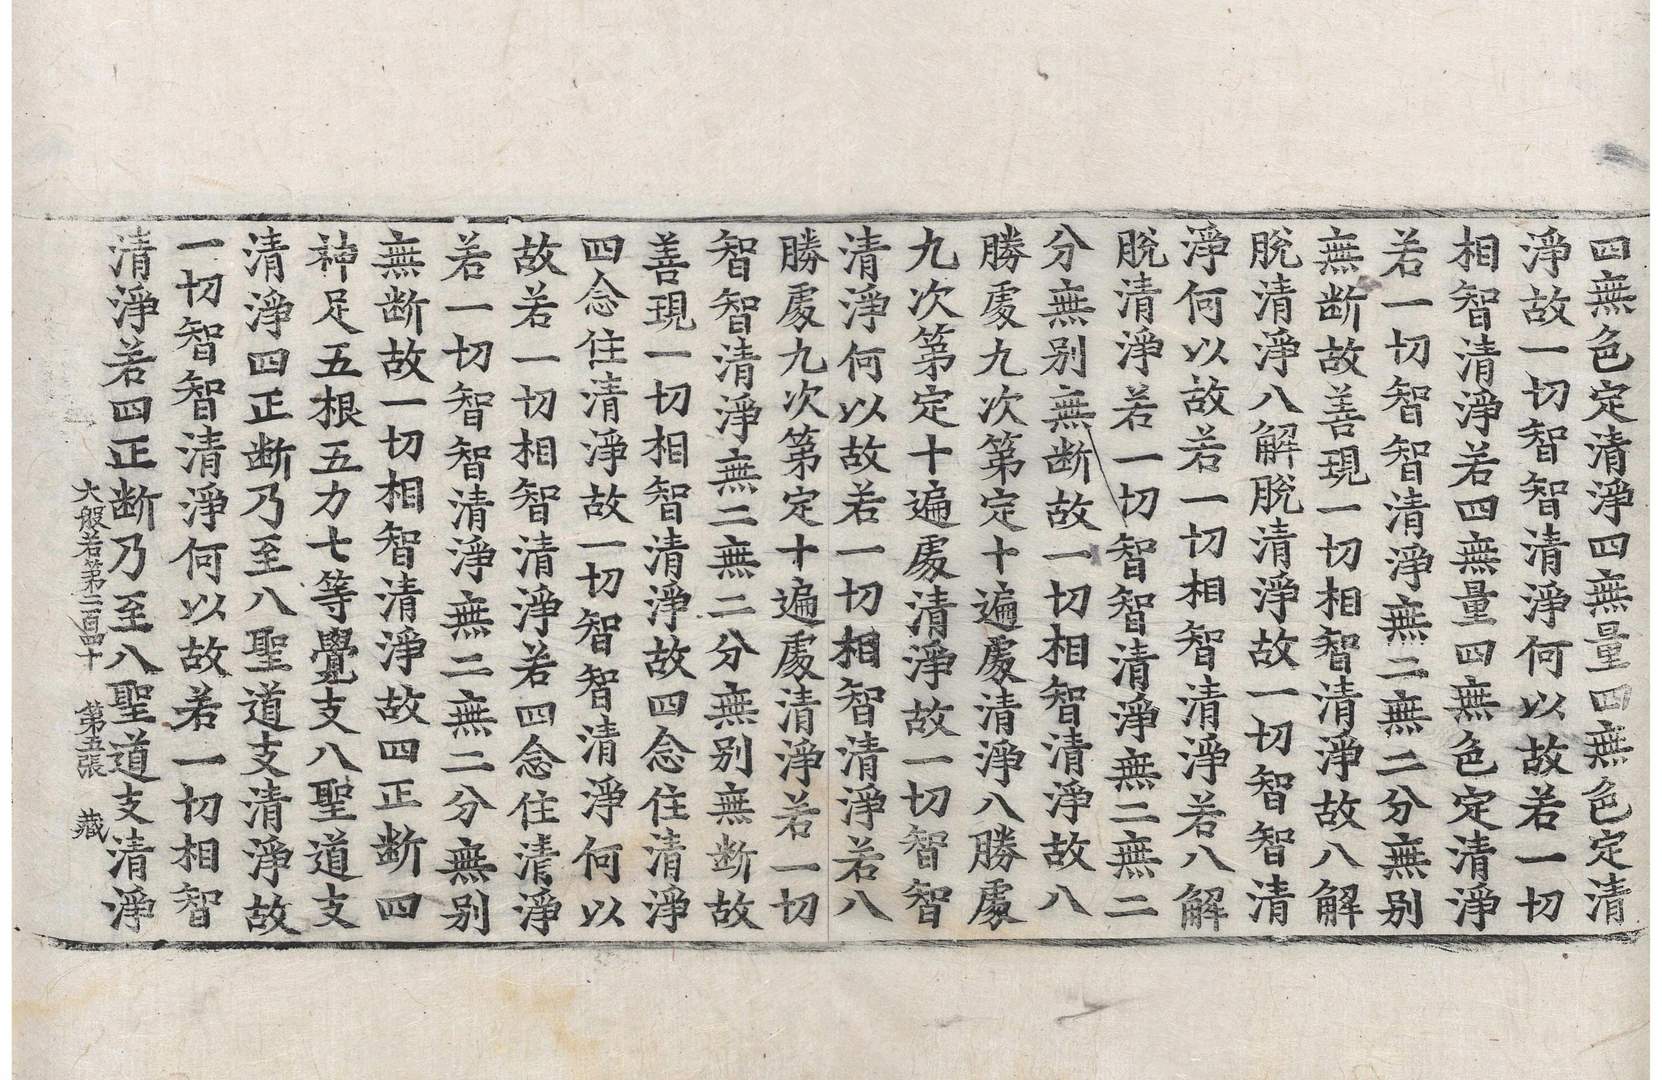 四無色定清淨四無量四無色定清
淨故一切智智清淨何以故若一切
相智清淨若四無量四無色定清淨
若一切智智清淨無二無二分無別
無断故善現一切相智清淨故八解
脫清淨八解脫清淨故一切智智清
淨何以故若一切相智清淨若八解
脫清淨若一切智智清淨無二無二
分無別無断故一切相智清淨故八
勝處九次第定十遍處清淨八勝處
九次第定十遍處清淨故一切智智
清淨何以故若一切相智清淨若八
勝處九次第定十遍處清淨若一切
智智清淨無二無二分無別無断故
善現一切相智清淨故四念住清淨
四念住清淨故一切智智清淨何以
故若一切相智清淨若四念住清淨
若一切智智清淨無二無二分無別
無断故一切相智清淨故四正断四
神足五根五力七等覺支八聖道支
清淨四正断乃至八聖道支清淨故
一切智智清淨何以故若一切相智
清淨若四正断乃至八聖道支清淨
大般若第二百四十 第五張 藏